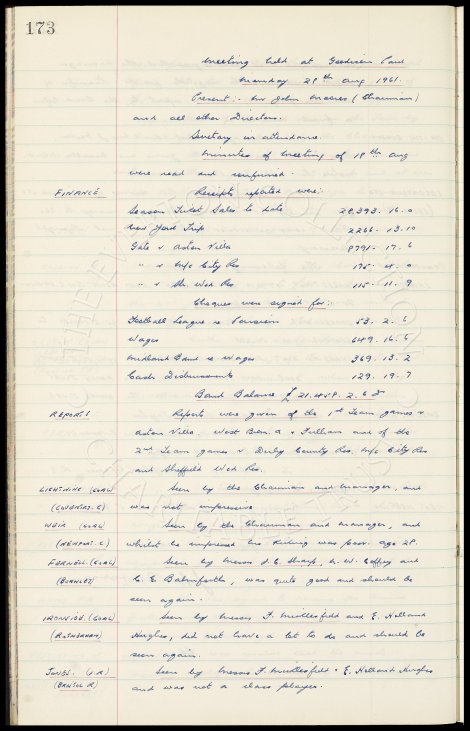 173
Meeting held at Goodison Park
Monday 28th Aug 1961.
Present:- Mr John Moores (Chairman)
and all other Directors.
Secretary in attendance.
Minutes of meeting of 18th Aug
were read and confirmed.
FINANCE Receipts reported were:
Season Ticket Sales to date 28,393. 16. 0
New York Trip 2266. 13. 10
Gate v Aston Villa 8791. 17. 6
" " v M/c City Res 175. 4. 0
" " v Sh. Wed Res 115. 11. 9
Cheques were signed for:
Football League re Pension 53. 2. 6
Wages 649. 16. 5
Midland Bank re Wages 369. 13. 2
Cash Disbursements 129. 19. 7
Bank Balance £ 21,458. 2. 6
REPORTS Reports was given of the 1st Team games v
Aston Villa. West Brom. A v Fulham and of the
2nd Team games v Derby County Res, M/c City Res
and Sheffield Wed Res.
LIGHTNING (GOAL) Seen by the Chairman and manager, and
(COVENTRY. C) was not impressive
WEIR (GOAL) Seen by the Chairman and manager, and
(NEWPORT. C) whilst he impressed his kicking was poor. age 28.
FURNELL (GOAL) Seen by Messrs J. C. Sharp, N. W. Coffey and
(BURNLEY) C. E. Balmforth, was quite good and should be
seen again.
IRONSIDE. (GOAL) Seen by Messrs F. Micklesfield and E. Holland
(ROTHERHAM) Hughes, did not have a lot to do and should be
seen again.
JONES. (I.R) Seen by Messrs F. Micklesfield & E. Holland Hughes
(BRISTOL R) and was not a class player.